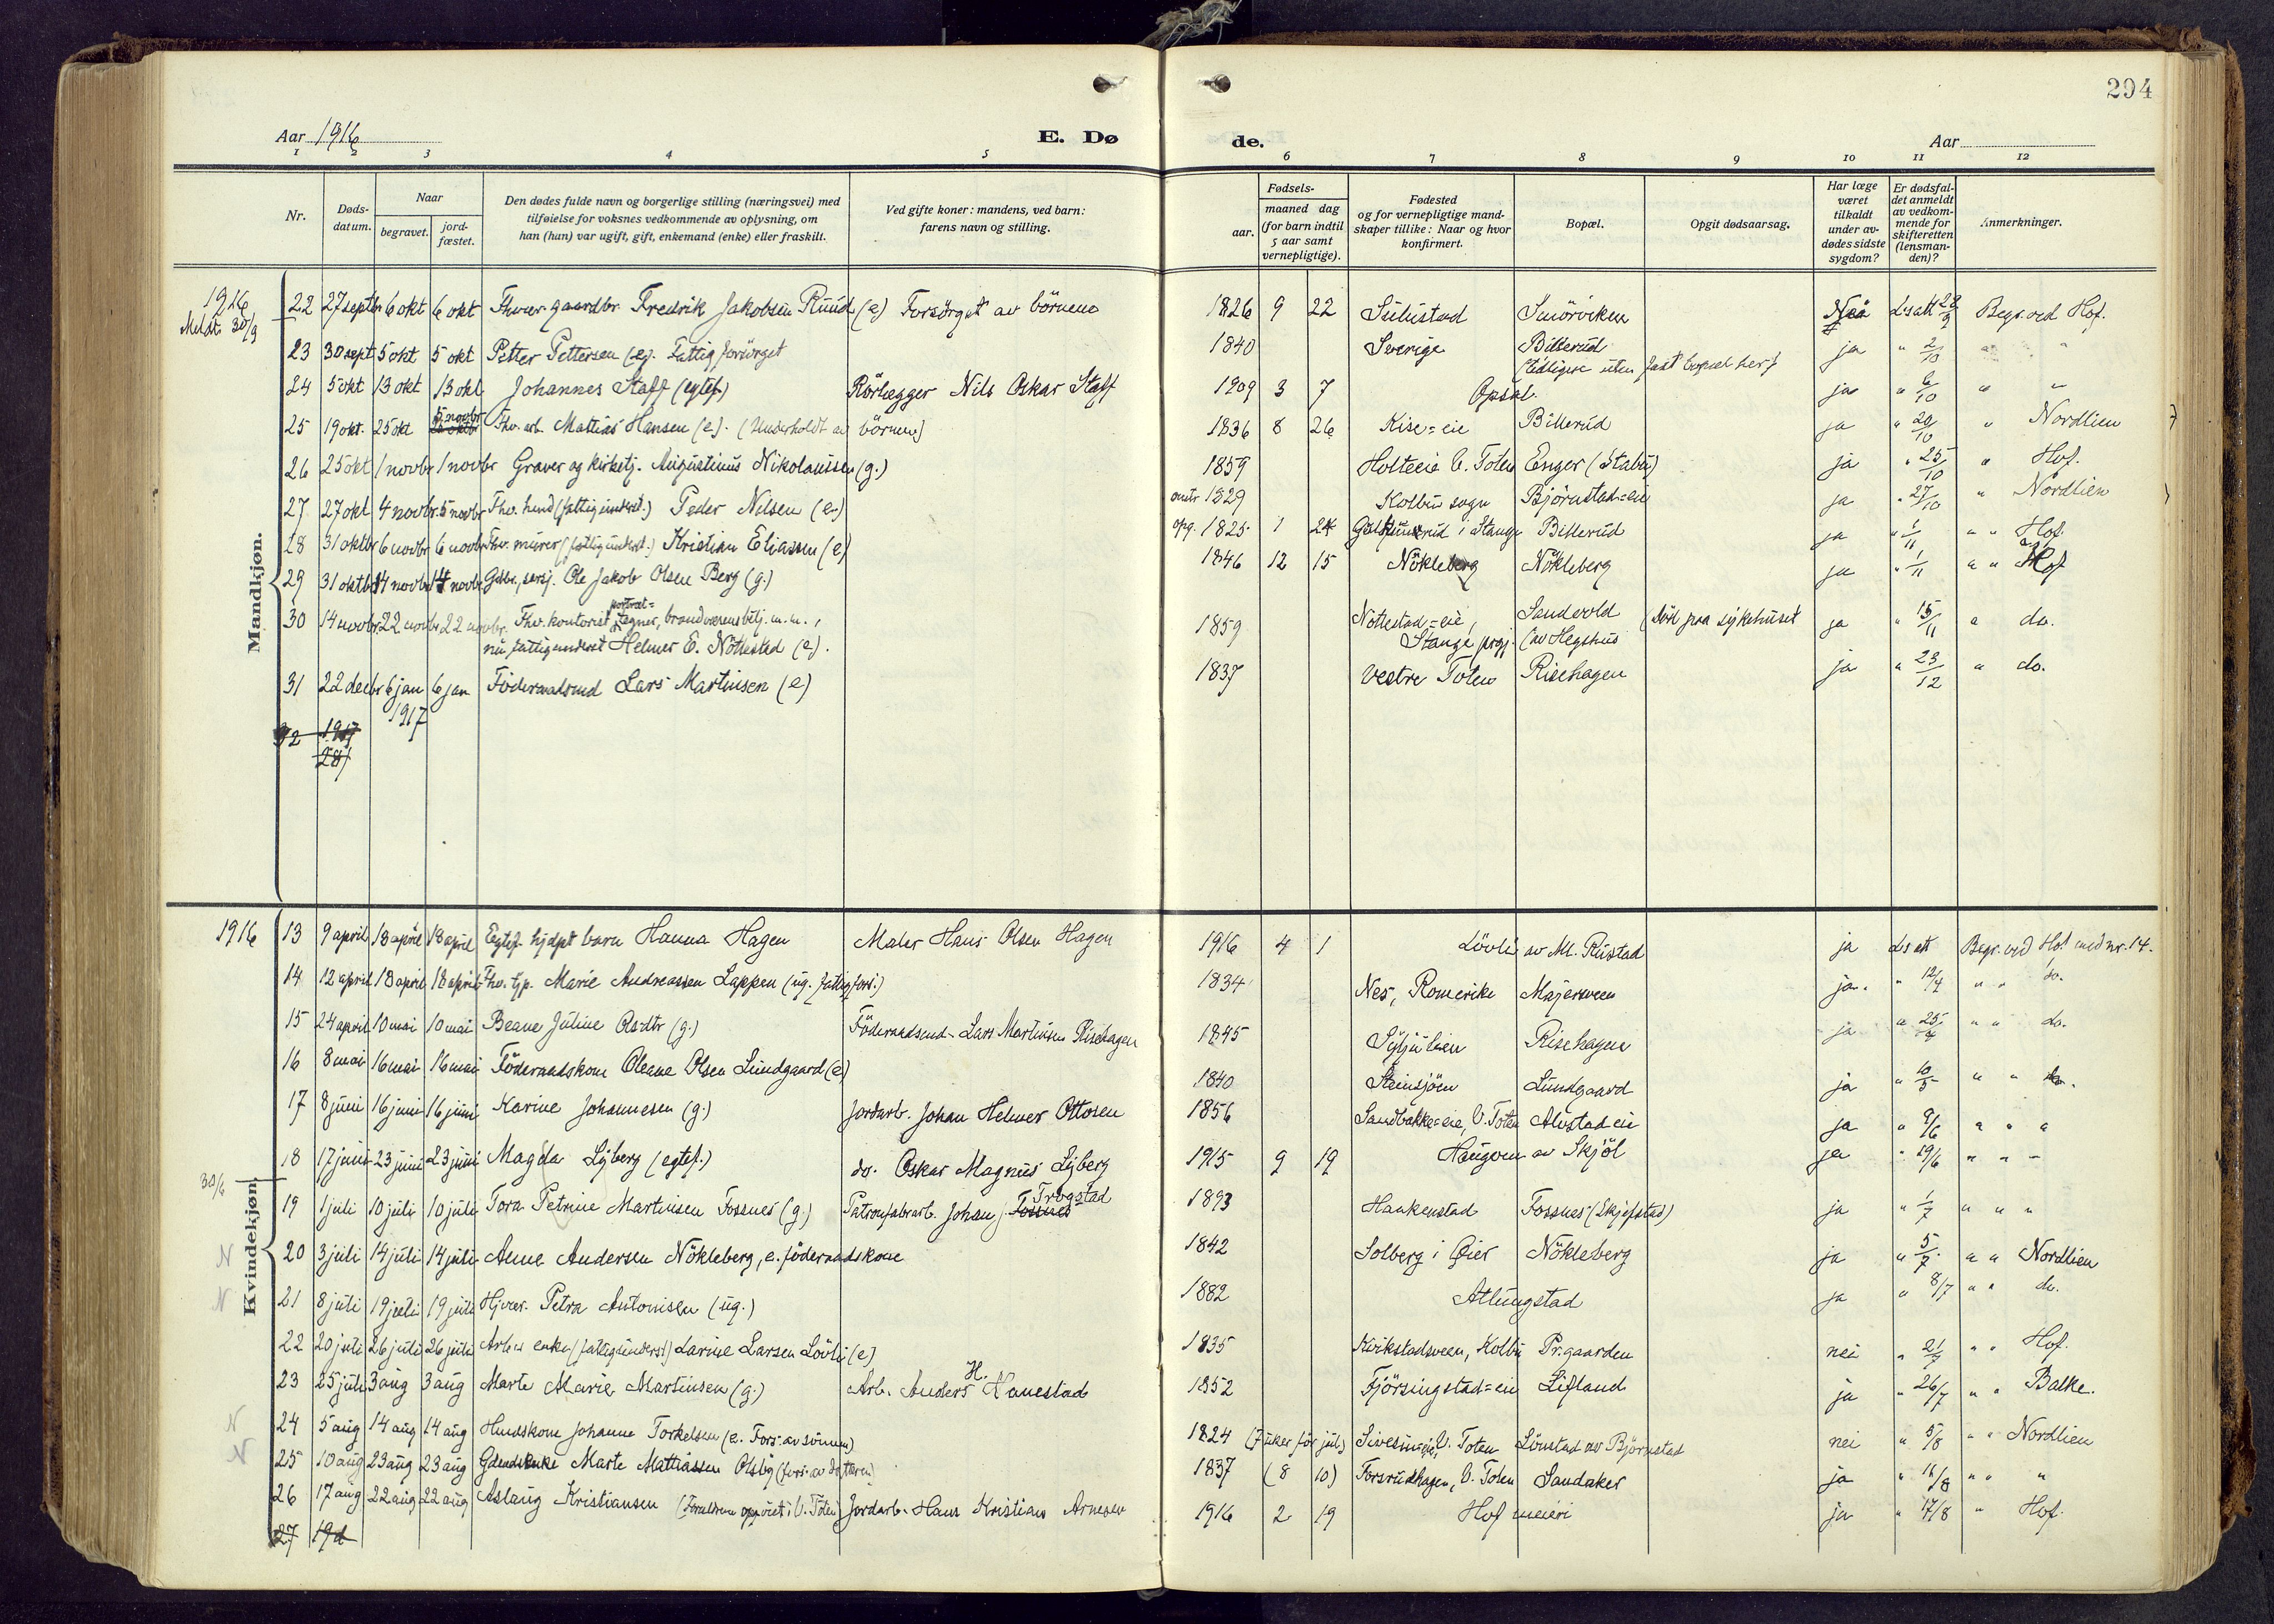 294
Aar 1916
E. Dø
de.
Aar
1 2 3 4 5 6 7 8 9 10 11 12
Nr.
Døds-
datum.
Naar
begravet.
jord-
fæstet.
Den dødes fulde navn og borgerlige stilling (næringsvei) med
tilføielse for voksnes vedkommende av oplysning, om
han (hun) var ugift, gift, enkemand (enke) eller fraskilt.
Ved gifte koner: mandens, ved barn:
farens navn og stilling.
Fødsels-
aar.
maaned dag
(for barn indtil
5 aar samt
vernepligtige).
Fødested
og for vernepligtige mand-
skaper tillike: Naar og hvor
konfirmert.
Bopæl.
Opgit dødsaarsag.
Har læge
været
tilkaldt
under av-
dødes sidste
sygdom?
Er dødsfal-
det anmeldt
av vedkom-
mende for
skifteretten
(lensman-
den)?
Anmerkninger.
Mandkjøn.
1916
Meldt 30/9
22 27 septbr 6 okt 6 okt Fhver. gaardbr. Fredrik Jakobsen Ruud (e) Forsörget av börnene 1826 9 22 Sulustad Smörviken Nei L. s att 28/9 Begr. ved Hof.
23 30 sept 5 okt 5 okt Petter Pettersen (e). Fattigforsörget 1840 Sverige Billerud ja " 2/10 " "
(tidligere uten fast bopæl her)
24 5 okt 13 okt 13 okt Johannes Staff (egtef.) Rörlægger Nils Oskar Staff 1909 3 7 Opsal. ja " 6/10 " "
25 19 okt. 25 okt 5 novbr Fhv. arb. Mattias Hansen (e). (Underholdt av börnene) 1836 8 26 Kise=eie Billerud ja " 20/10 " Nordlien
26 25 okt 1 novbr 1 novbr Graver og kirketj. Augustinus Nikolaussen (g.) 1859 Holteeie V. Toten Enger (Stabu) ja " 25/10 " Hof.
27 27 okt 4 novbr. 5 novbr Fhv. husmd (fattigunderst.) Peder Nilsen (e) omtr 1829 Kolbu sogn Björnstad=eie ja " 27/10 " Nordlien
28 31 oktbr 6 novbr 6 novbr Fhv. murer (fattigunderst.) Kristian Eliassen (e) opg. 1825 1 24 i Stange Billerud ja " 1/11 " " Hof.
29 31 oktbr 14 novbr 14 novbr Gdbr., sersj. Ole Jakob Olsen Berg (g.) 1846 12 15 Nökleberg Nökleberg ja " 1/11 " " Hof
30 14 novbr. 22 novbr. 22 novbr. Fhv. kontorist, portræt=tegner, brandvæsensbetj. m.m.,
nu fattigunderst Helmer E. Nöttestad (e). 1859 Nottestad=eie, Stange prgj. Sandvold (av Hegshus (död paa sykehuset ja " 15/11 " do.
31 22 decbr 6 jan 6 jan Föderaadsmd Lars Martinsen (e) 1837 Vestre Toten Risehagen ja " 23/12 " do.
1917
32 1917
28/
Kvindekjøn.
1916
13 9 april 18 april 18 april Egtef. hjdpt barn Hanna Hagen Maler Hans Olsen Hagen 1916 4 1 Lövli av M. Rustad ja L s att Begr. ved Hof med nr. 14.
14 12 april 18 april 18 april Fhv. tjp. Marie Andreassen Lappen (ug. fattigfors.) 1834 Nes, Romerike Majersveen ja. " 12/4 " " do.
15 24 april 10 mai 10 mai Beane Juline Olsdtr (g.) Föderaadsmd. Lars Martinsen Risehagen 1845 Syljulien Risehagen ja " 25/4 " " do.
16 8 mai 16 mai 16 mai Föderaadskone Oleane Olsen Lundgaard (e) 1840 Steinsjöen Lundgaard ja " 10/5 " " do.
17 8 juni 16 juni 16 juni Karine Johannesen (g.) Jordarb. Johan Helmer Ottosen 1856 Sandbakke=eie, V. Toten Alvstad eie ja " 9/6 " " "
18 17 juni 23 juni 23 juni Magda Lyberg (egtef.) do. Oskar Magnus Lyberg 1915 9 19 Haugom av Skjöl ja " 19/6 " " "
30/6
19 1 juli 10 juli 10 juli Tora Petrine Martinsen Fossnes (g.) Patronfabrarb. Johan J. Fossnes Trogstad 1893 Haukenstad Fossnes (Skjefstad) ja " 1/7 " " "
N 20 3 juli 14 juli 14 juli Anne Andersen Nökleberg, e. föderaadskone 1842 Solberg i Öier Nökleberg ja " 5/7 " " Nordlien
N 21 8 juli 19 juli 19 juli Hjver. Petra Antonisen (ug.) 1882 Atlungstad ja " 8/7 " " do.
22 20 juli 26 juli 26 juli Arb.s enke (fattigunderst) Larine Larsen Lövli (e) 1835 Kirkstadsveen, Kolbu Pr.gaarden nei " 21/7 " " Hof.
23 25 juli 3 aug 3 aug Marte Marie Martinsen (g.) Arb. Anders H. Hanestad 1852 Fjörsingstad=eie Lifland ja " 26/7 " " Balke.
N 24 5 aug 14 aug 14 aug Husmdskone Johanne Torkelsen (e. Fors. av sönnen) 1824 (7 uker för jul.) Sivesin=eie, V. Toten Lönstad av Björnstad nei " 5/8 " " Nordlien
N 25 10 aug 23 aug 23 aug Gdmdsenke Marte Mattiassen Olsby (fors. av datteren) 1837 (8 10) Forsrudhagen, V. Toten Sandaker ja " 11/8 " " "
26 17 aug 22 aug 22 aug Aslaug Kristiansen (Forældrene opvoxet i V. Toten) Jordarb. Hans Kristian Arnesen 1916 2 19 Hof meieri ja " 17/8 " Hof.
27 19 d